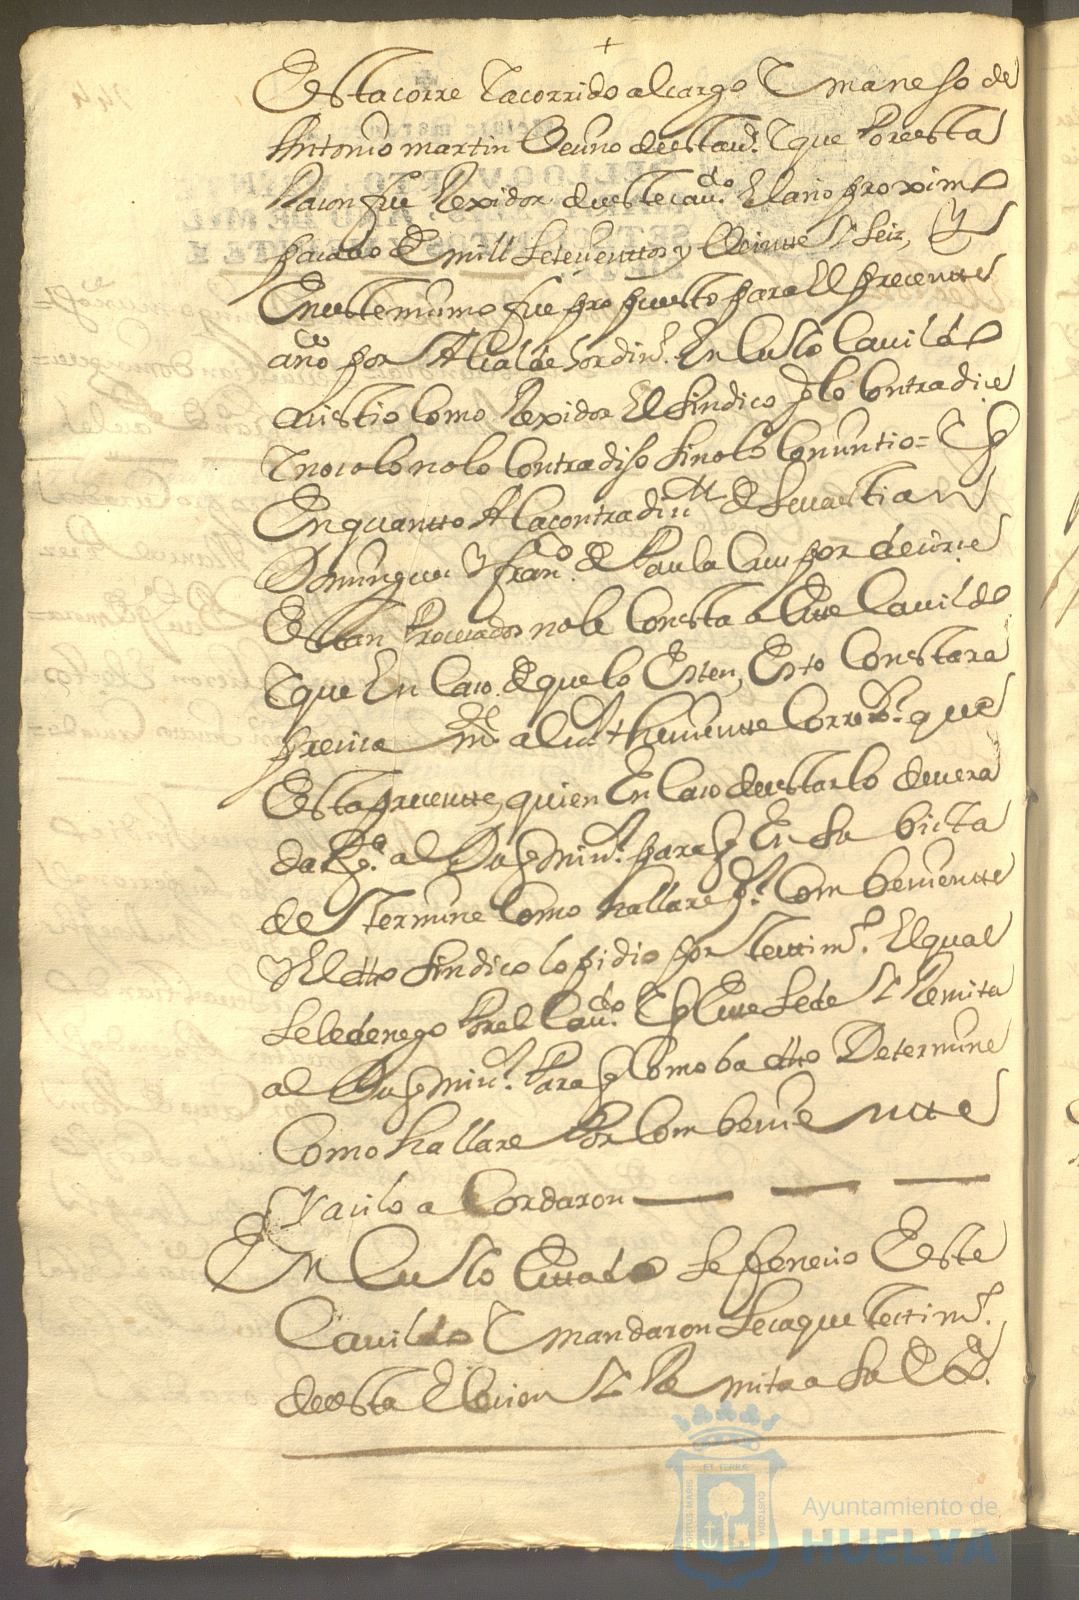 +
Esta corre Y acorrido al cargo Y maneso de
Antonio martin Veuno deesta u.ª Y que Por esta
Racon fue Rexidor deeste cau.do El año proximo
pacado de mill Setesenttos y Veintte Y Seiz, Y
En este mismo fue propuesto para El precentte
año por Alcalde hordin.º En Cuyo Cauildo
acistio Como Rexidor El Sindico Y lo Contradice
Y no solo no lo Contradiso Sino lo Concintio = Y q
En quantto A la contradi de Seuastian
Domingues Y Fran.co de Paula Cru por decirse
Estan Procesados no le Consta a Este Cauildo
Y que En Caso de que lo Esten, Esto Constara
al theniente Correx.or que
Esta precentte, quien En Caso deestarlo deuera
dar q.ta al Duq mi s.r para q En Su bista
determine Como hallare p.r Combenientte
Y El dho Sindico lo pidio por testtim.º El qual
Se le denego Por el Cau.do Y q Este Se de Y Remita
al Duq mi s.r Para q Como ba dho Determine
Como hallare Por Combenientte
Y asi lo a Cordaron
En Cuyo Esttado Se fenecio Este
Cauildo Y mandaron Secaque testtim.º
deesta Elecion Y Re mita a Su E.
Ayuntamiento de
HUELVA